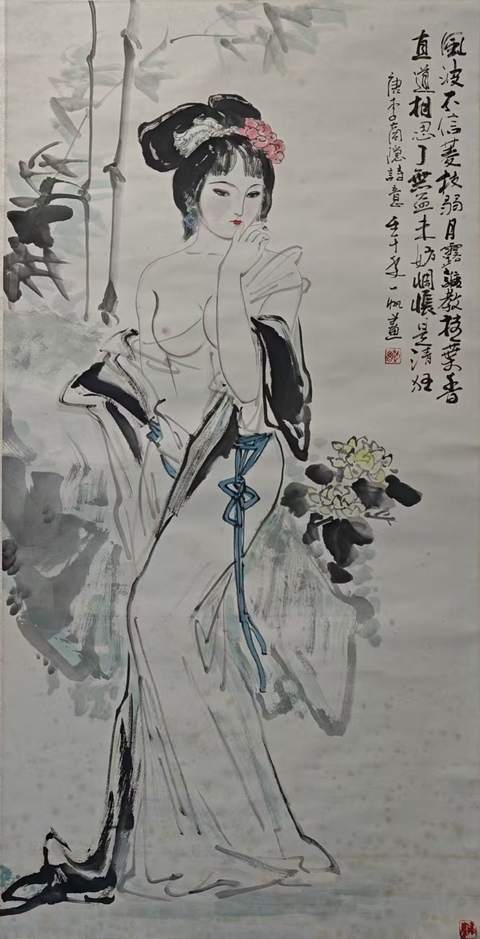 風波不信菱枝弱月露誰教桂葉香
直道相思了無益未妨惆悵是清狂
唐李商隐詩意壬午一帆畫